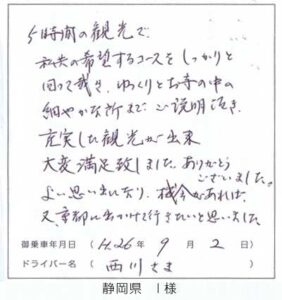 5時間の観光で、
私共の希望するコースをしっかりと
回って戴き、ゆっくりとお寺の中の
細やかな所まで、ご説明頂き、
充実した観光が出来
大変満足致しました。ありがとう
ございました。
よい思い出になり、機会があれば、
又、京都に出かけて行きたいと思いました。
御乗車年月日 ( H.26年 9月 2日 )
ドライバー名 ( 西川さま )
静岡県 I様